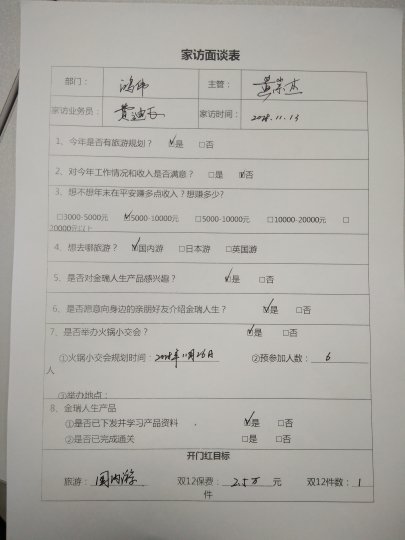 家访面谈表
部门： 鸿伟 主管： 黄崇杰
家访业务员： 黄迪飞 家访时间： 2018.11.13
1、今年是否有旅游规划？ ☑是 □否
2、对今年工作情况和收入是否满意？ □是 ☑否
3、想不想年末在平安赚多点收入？想赚多少?
□3000-5000元 ☑5000-10000元 □5000-10000元 □10000-20000元 □
20000元以上
4、想去哪旅游？ ☑国内游 □日本游 □英国游
5、是否对金瑞人生产品感兴趣？ ☑是 □否
6、是否愿意向身边的亲朋好友介绍金瑞人生？ ☑是 □否
7、是否举办火锅小交会？ ☑是 □否
①火锅小交会规划时间：2018年11月26日 ②预参加人数： 6
人
③举办地点：
8、金瑞人生产品
①是否已下发并学习产品资料 ☑是 □否
②是否已完成通关 □是 □否
开门红目标
旅游： 国内游 双12保费： 2.5万 元 双12件数： 1
件